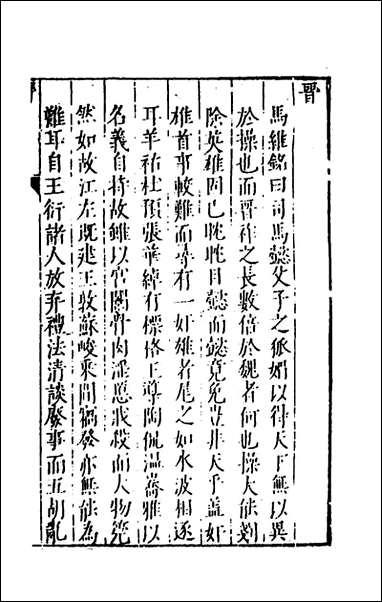 晋
馬維銘曰司馬懿父子之狐媚以得天下無以異
於操也而晋祚之長數倍於魏者何也操大能剗
除英雄固已眈眈目懿而懿竟免豈非天乎蓋奸
雄首事較難而尋有一奸雄者尾之如水波相逐
耳羊祜杜預張華綽有標格王導陶侃溫嶠雅以
名義自持故雖以宮闈骨肉淫惡戕殺而大物篼
然如故江左既建王敦蘇峻乘間竊發亦無能為
難耳自王衍諸人放弃禮法清談廢事而五胡亂